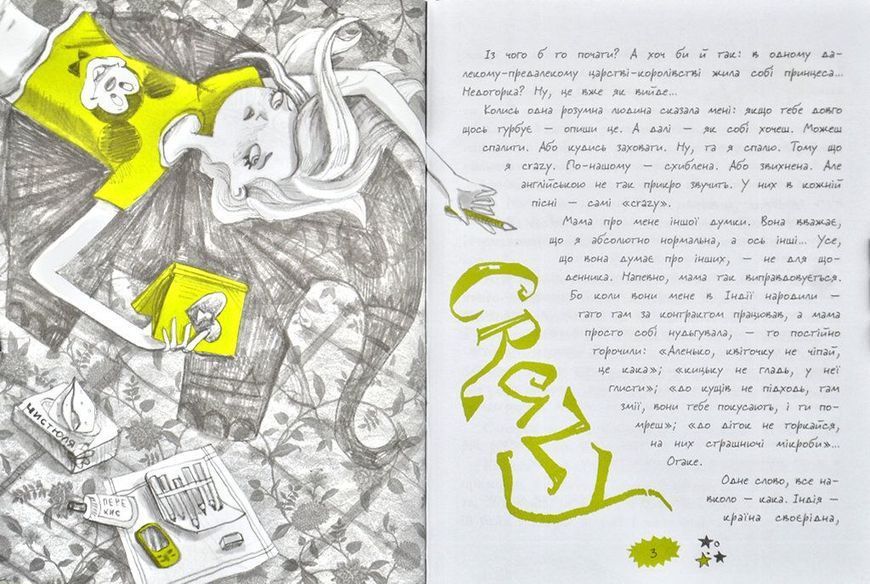 ЧИСТЮЛЯ
ПЕРЕ
КИС
Із чого б то почати? А хоч би й так: в одному да-
лекому-предалекому царстві-королівстві жила собі принцеса...
Недоторка? Ну, це вже як вийде...
Колись одна розумна людина сказала мені: якщо тебе довго
щось турбує — опиши це. А далі — як собі хочеш. Можеш
спалити. Або кудись заховати. Ну, та я спалю. Тому що
я crazy. По-нашому — схиблена. Або звихнена. Але
англійською не так прикро звучить. У них в кожній
пісні — самі «crazy».
Мама про мене іншої думки. Вона вважає,
що я абсолютно нормальна, а ось інші... Усе,
що вона думає про інших, — не для що-
денника. Напевно, мама так виправдовується.
Бо коли вони мене в Індії народили —
тато там за контрактом працював, а мама
просто собі нудьгувала, — то постійно
торочили: «Аленько, квіточку не чіпай,
це кака»; «кицьку не гладь, у неї
глисти»; «до кущів не підходь, там
змії, вони тебе покусають, і ти по-
мреш»; «до діток не торкайся,
на них страшнючі мікроби»...
Отаке.
Одне слово, все на-
вколо — кака. Індія —
країна своєрідна,
CRAZY
3